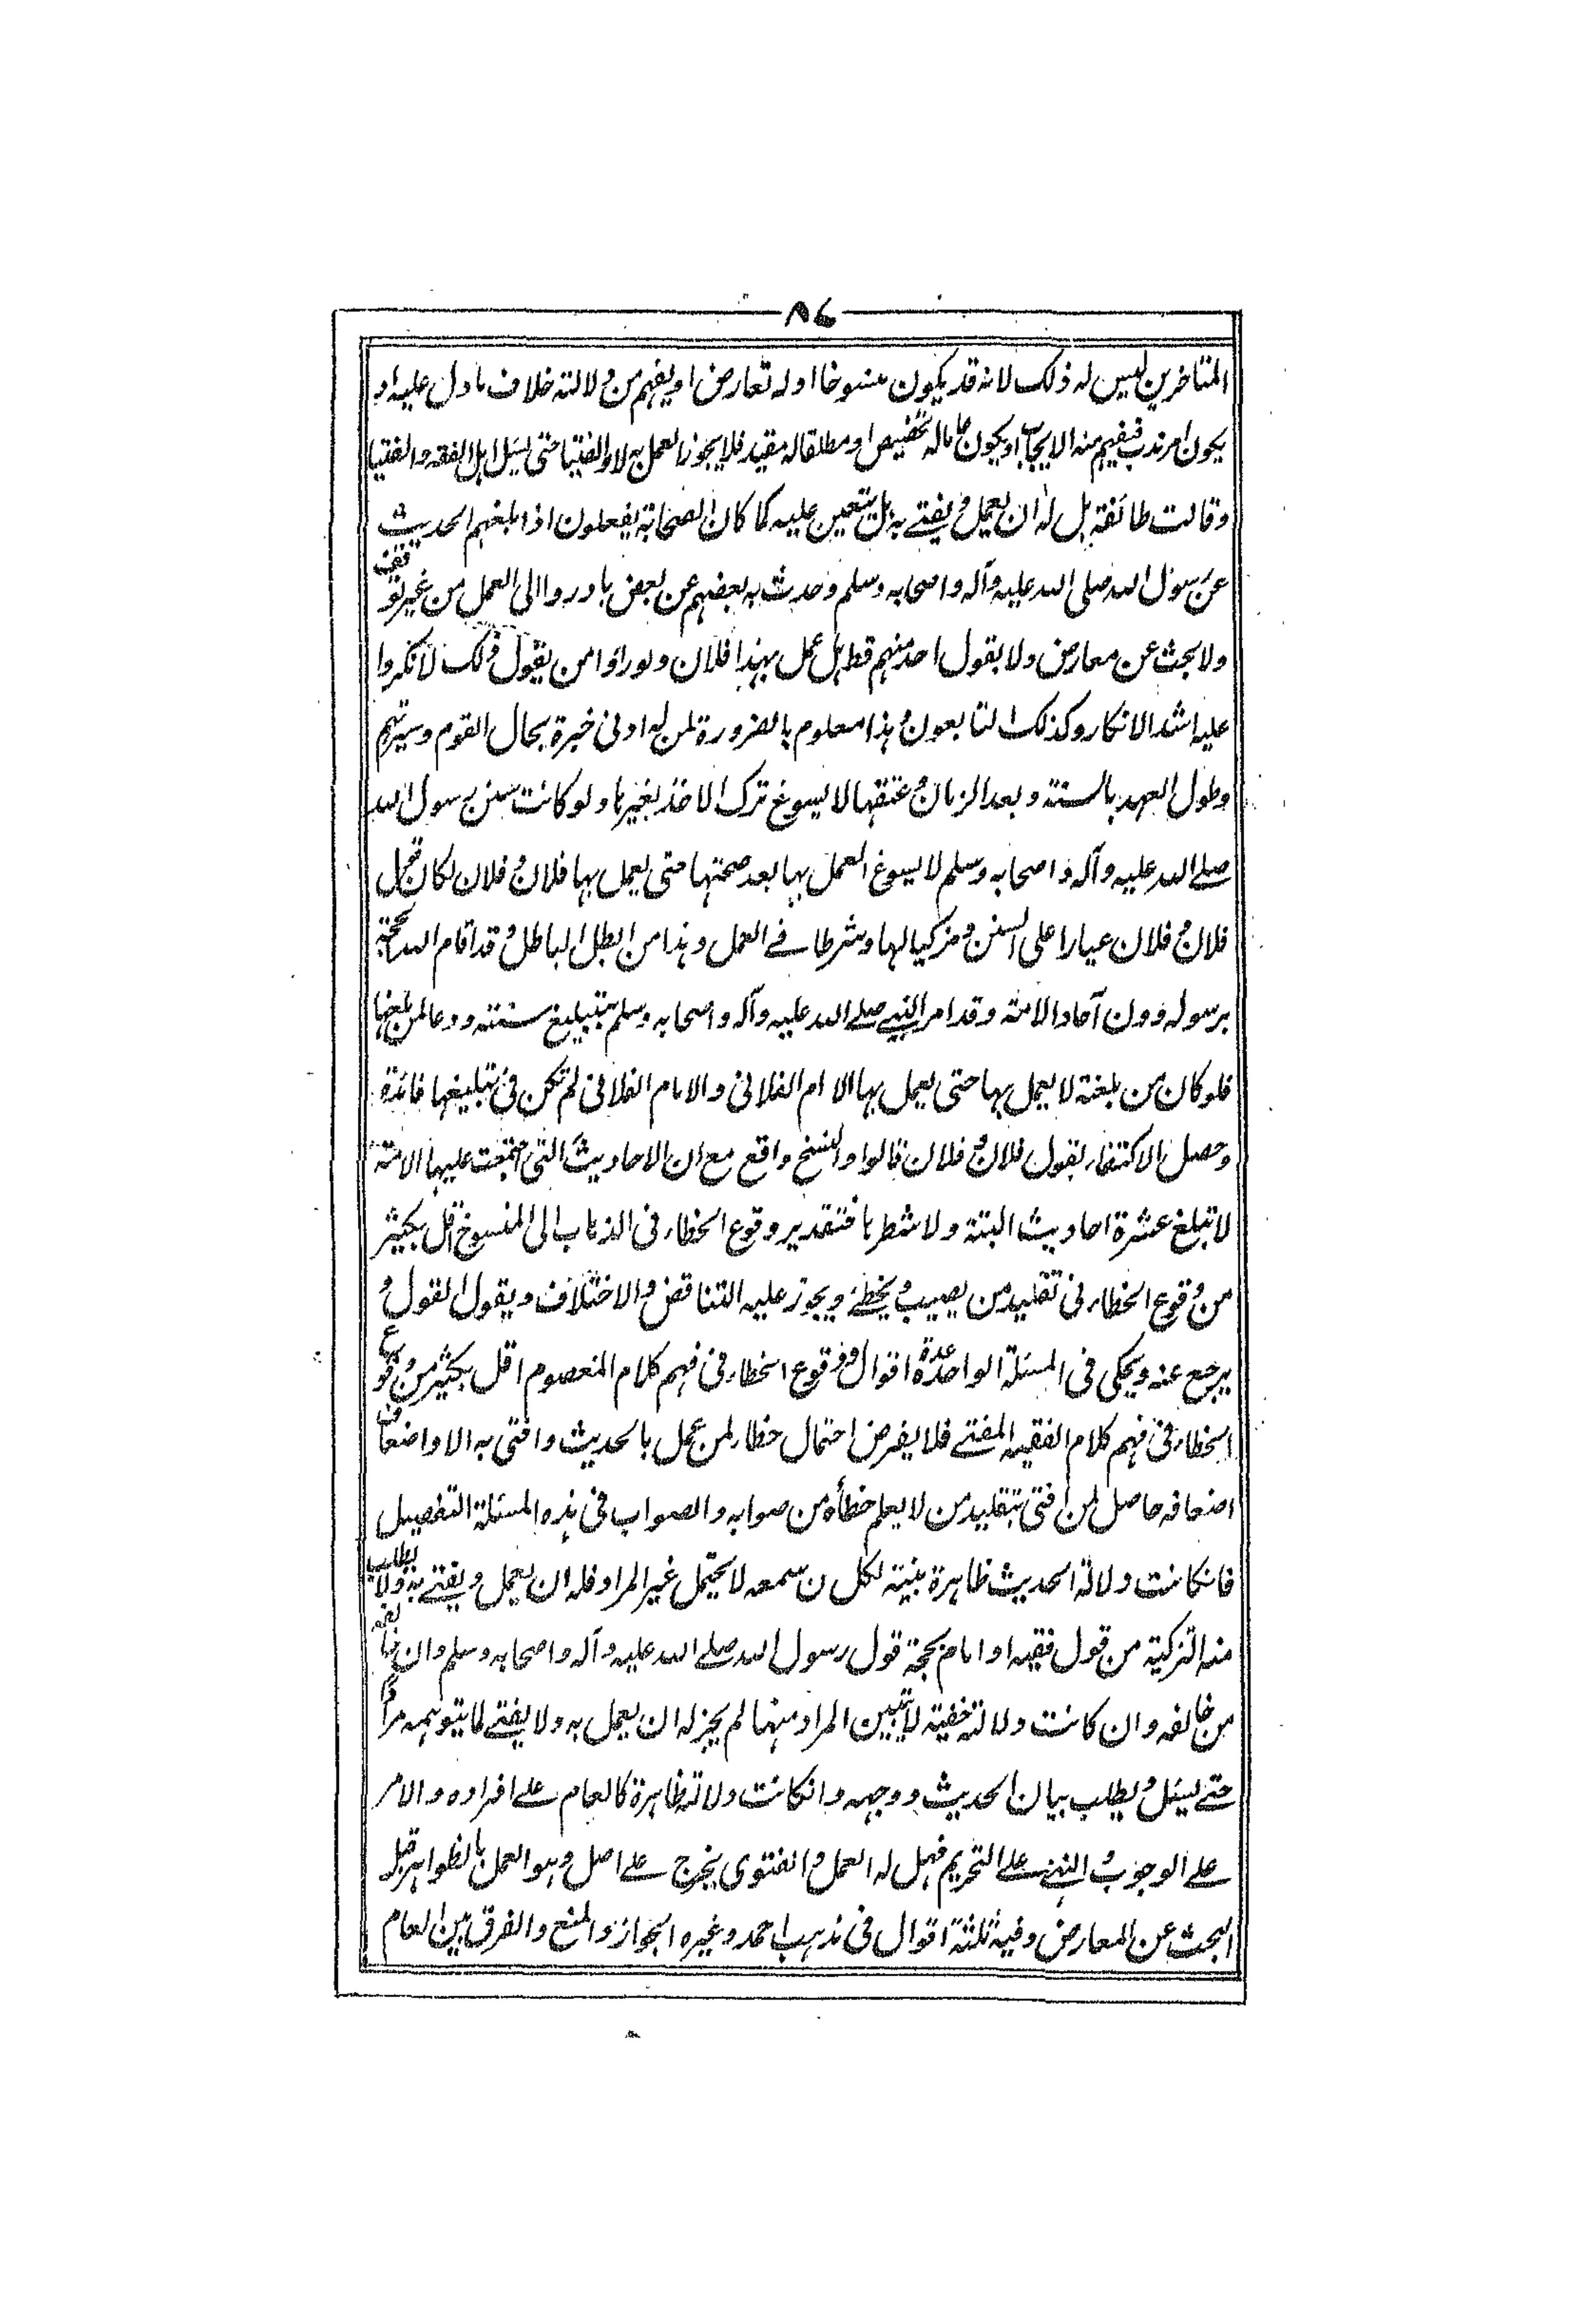 ٨٤
المتاخرين ليس له ذلك لانه قد يكون منسوخا او له تعارض او يفهم من دلالته خلاف ما دل عليه او
يكون امر ندب فيفهم منه الايجاب او يكون عاما له تخصيص او مطلقا له مقيد فلا يجوز العمل به ولا الفتيا حتى يسئل اهل الفقه والفتيا
وقالت طائفة بل له ان يعمل ويفتے به بل يتعين عليه كما كان الصحابة يفعلون اذا بلغهم الحديث
عن رسول الله صلى الله عليه وآله واصحابه وسلم وحدث به بعضهم عن بعض بادروا الى العمل من غير توقف
ولا بحث عن معارض ولا يقول احد منهم قط هل عمل بهذا فلان ولو راوا من يقول ذلك لانكروا
عليه اشد الانكار وكذلك التابعون وهذا معلوم بالضرورة لمن له ادنى خبرة بحال القوم وسيرتهم
وطول العهد بالسنة وبعد الزمان وعتقها لا يسوغ ترك الاخذ بغيرها ولو كانت سنن رسول الله
صلے الله عليه وآله واصحابه وسلم لا يسوغ العمل بها بعد صحتها حتى يعمل بها فلان وفلان لكان عمل
فلان وفلان عيارا على السنن ومزكيا لها وشرطا فے العمل وهذا من ابطل الباطل وقد اقام الله الحجة
برسوله دون آحاد الامة وقد امر النبے صلے الله عليه وآله واصحابه وسلم بتبليغ سنته ودعا لمن بلغها
فلو كان من بلغته لا يعمل بها حتى يعمل بها الامام الفلانى والامام الفلانى لم تكن فى تبليغها فائدة
وحصل الاكتفاء بقول فلان وفلان قالوا والنسخ واقع مع ان الاحاديث التى اجتمعت عليها الامة
لا تبلغ عشرة احاديث البتة ولا شطرها فتقدير وقوع الخطاء فى الذهاب الى المنسوخ اقل بكثير
من وقوع الخطاء فى تقليد من يصيب ويخطئ ويجوز عليه التناقض والاختلاف ويقول القول و
يرجع عنه ويحكى فى المسئلة الواحدة عدة اقوال ووقوع الخطاء فى فهم كلام المعصوم اقل بكثير من وقوع
الخطاء فى فهم كلام الفقيه المفتے فلا يفرض احتمال خطاء لمن عمل بالحديث وافتى به الا واضعاف
اضعافه حاصل لمن افتى بتقليد من لا يعلم خطأه من صوابه والصواب فى هذه المسئلة التفصيل
فانكانت دلالة الحديث ظاهرة بينة لكل من سمعه لا يحتمل غير المراد فله ان يعمل ويفتے به ولا يطلب
منه التزكية من قول فقيه او امام بحجة قول رسول الله صلے الله عليه وآله واصحابه وسلم وان خالفه
من خالفه وان كانت دلالته خفية لا يتبين المراد منها لم يجز له ان يعمل به ولا يفتے لما يتوهمه مرادا
حتے يسئل ويطلب بيان الحديث ووجهه وانكانت دلالته ظاهرة كالعام علے افراده والامر
علے الوجوب والنهے علے التحريم فهل له العمل والفتوى يخرج علے اصل وهو العمل بالظواهر قبل
البحث عن المعارض وفيه ثلثة اقوال فى مذهب احمد وغيره الجواز والمنع والفرق بين العام